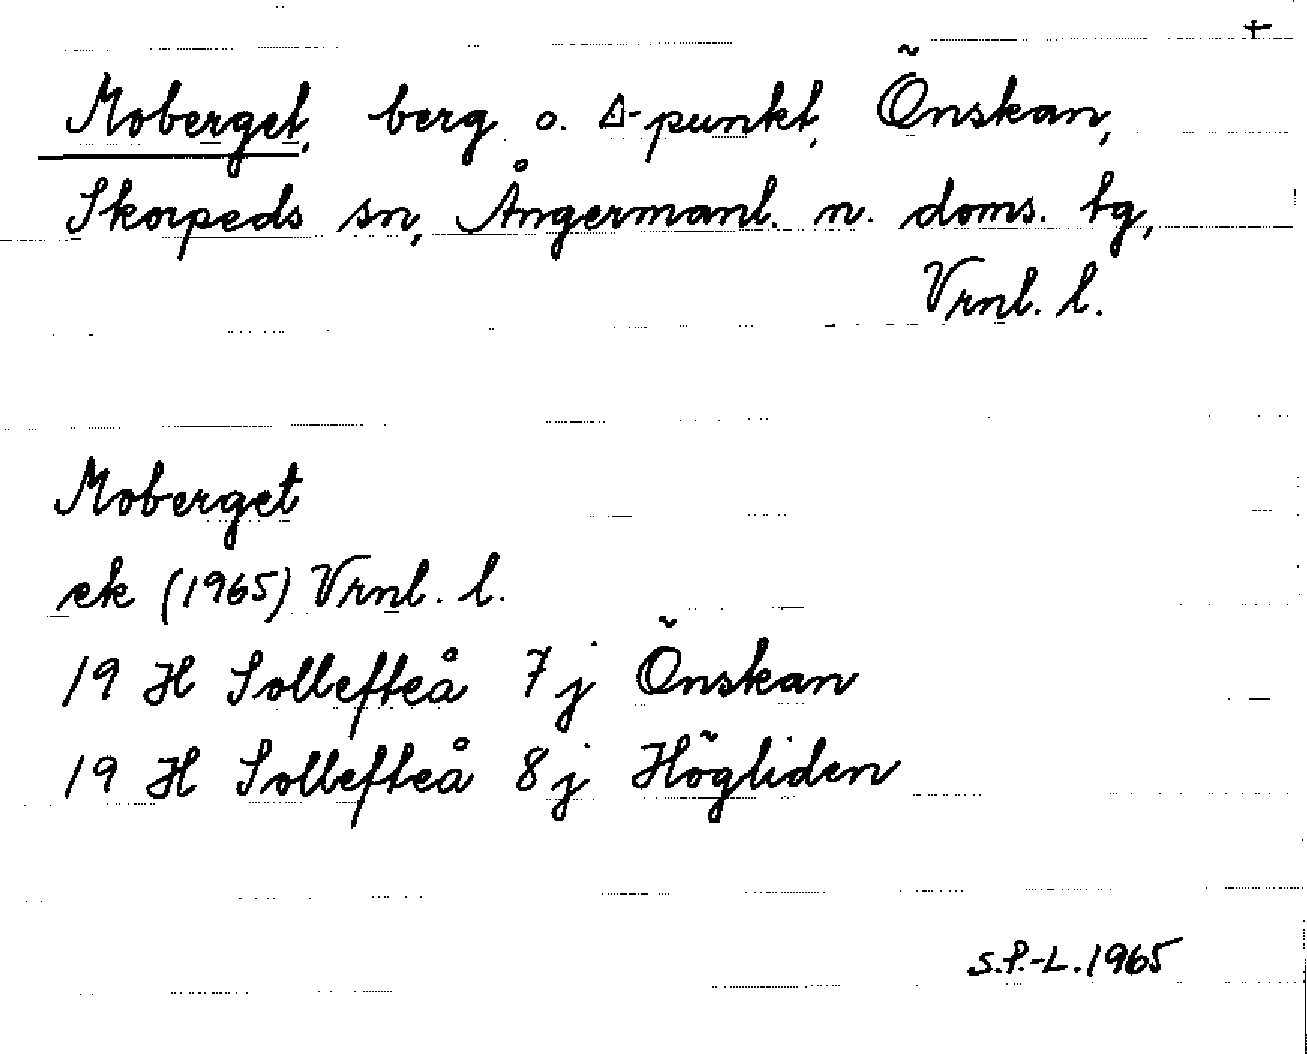 +
Moberget, berg o. Δ-punkt, Önskan,
Skorpeds sn, Ångermanl. n. doms. tg,
Vrnl. l.
Moberget
ek (1965) Vrnl. l.
19 H Sollefteå 7 j Önskan
19 H Sollefteå 8 j Högliden
S.P.-L. 1965